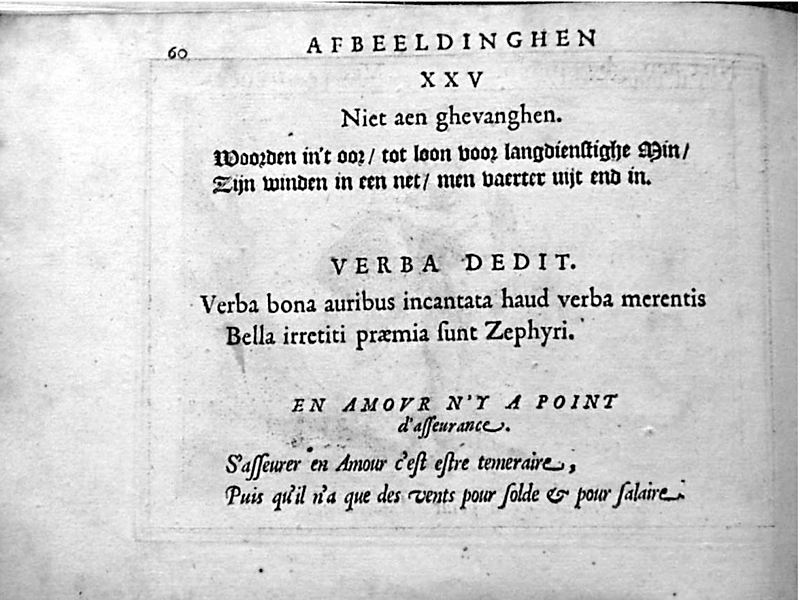 60
AFBEELDINGHEN
XXV
Niet aen ghevanghen.
Woorden in't oor/ tot loon voor langdienstighe Min/
Zijn winden in een net/ men vaerter uijt end in.
VERBA DEDIT.
Verba bona auribus incantata haud verba merentis
Bella irretiti præmia ſunt Zephyri.
EN AMOVR N'Y A POINT
d'aſſeurance.
S'aſſeurer en Amour c'eſt eſtre temeraire,
Puis qu'il n'a que des vents pour ſolde & pour ſalaire.